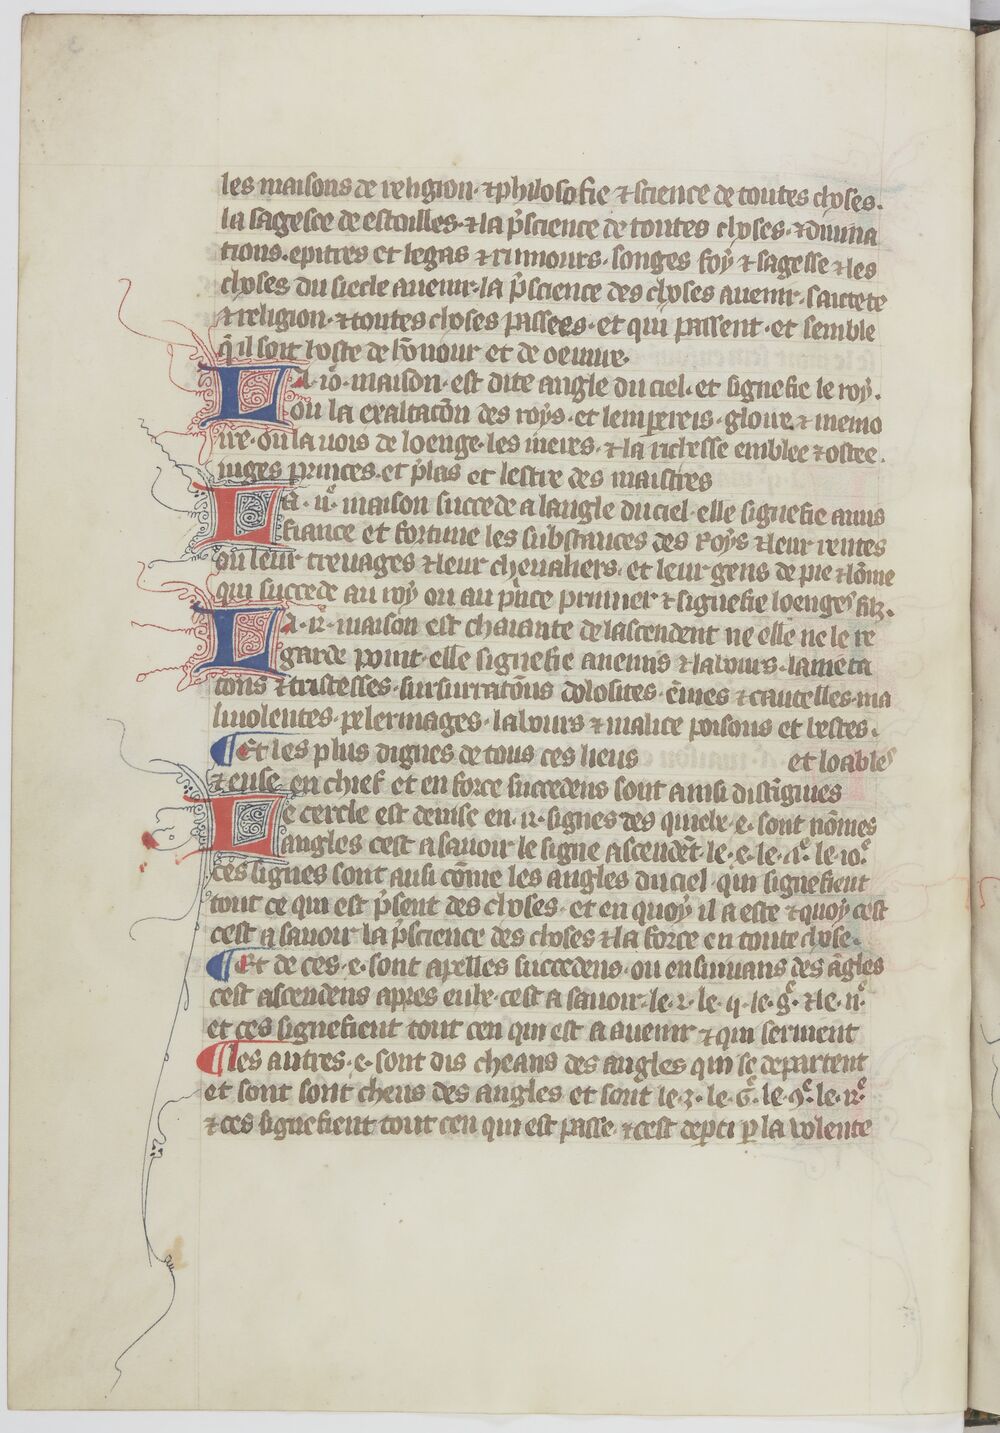 les maisons de religion· ⁊ philosofie ⁊ science de toutes choses.
la sagesce de estoilles· ⁊ la p̄science de toutes choses· ⁊ diuina
tions· epitres et legas ⁊ rumours· songes foy ⁊ sagesse ⁊ les
choses du siecle auenir· la p̄science des choses auenir· saintete
⁊ religion· ⁊ toutes choses passees· et qui passent· et semble
q̄ il soit loste de lōnour et de oeuure·
La· 10ͤ· maison· est dite angle du ciel· et signefie le roy.
ou la exaltacōn des roys· et lemp̲ereis· gloire ⁊ memo
ire· ou la uois de loenge· les meres· ⁊ la richesse emblee ⁊ ostee.
iuges princes· et p̄las et lestre des maistres
La· 11ͤ· maison succede a langle du ciel· elle signefie amis
fiance et fortune les substances des roys ⁊ leur rentes
ou leur treuages ⁊ leur cheualiers· et leur gens de pie ⁊ lōme
qui succede au roy ou au p̄ice primier ⁊ signefie loenges faiz·
La· 12ͤ· maison est chaiante de lascendent ne elle ne le re
garde point· elle signefie anemis ⁊ labours· lameta
tons ⁊ tristesses· sursurratōns dolosites· ēuies ⁊ cautelles· ma
liuolentes· pelerinages· labours ⁊ malice poisons et bestes·
¶ Et les plus dignes de tous ces lieus et loables
en chief et en force succedens sont ainsi distīgues
Le cercle est deuise en· 12· signes des quielx· e· sont nōmes
angles cest a sauoir le signe ascendēt· le· e· le· 1ͤ· le· 10ͤ·
ces signes sont ausi cōme les angles du ciel· qui signefient
tout ce qui est p̄sent des choses· et en quoy il a este ⁊ quoy cest
cest a sauoir la p̄science des choses ⁊ la force en toute chose·
¶ Et de ces· e· sont apelles succedens· ou ensiuuans des āgles
cest ascendens apres eulx· cest a sauoir· le· 2· le· q· le· 8ͤ· ⁊ le· 11ͤ·
et ces signefient tout cen qui est a auenir ⁊ qui seruient
¶ les autres· e· sont dis cheans des angles qui se departent
et sont sont cheus des angles et sont le· 3· le· 6ͤ· le· 9ͤ· le· 12ͤ·
⁊ ces signefient tout cen qui est passe· ⁊ cest dep̲ti p̲ la volente